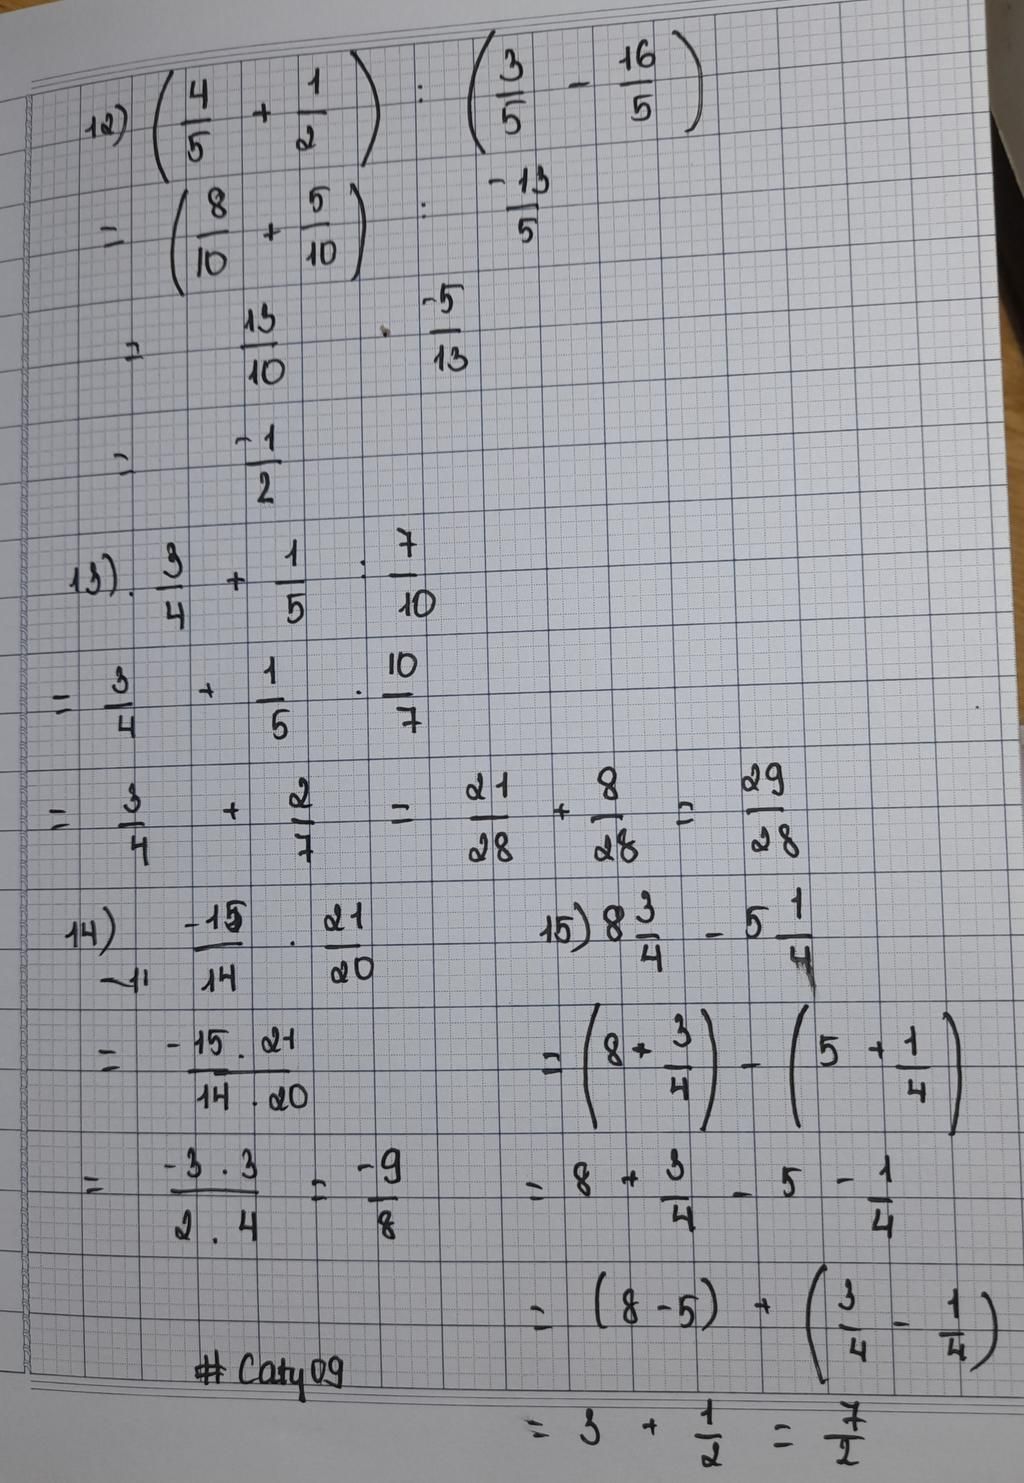 12) (4/5 + 1/2) : (3/5 - 16/5)
= (8/10 + 5/10) : -13/5
= 13/10 . -5/13
= -1/2
13). 3/4 + 1/5 : 7/10
= 3/4 + 1/5 . 10/7
= 3/4 + 2/7 = 21/28 + 8/28 = 29/28
14) -15/14 . 21/20
= -15 . 21/14 . 20
= -3 . 3/2 . 4 = -9/8
15) 8 3/4 - 5 1/4
= (8 + 3/4) - (5 + 1/4)
= 8 + 3/4 - 5 - 1/4
= (8 - 5) + (3/4 - 1/4)
= 3 + 1/2 = 7/2
# Caty09